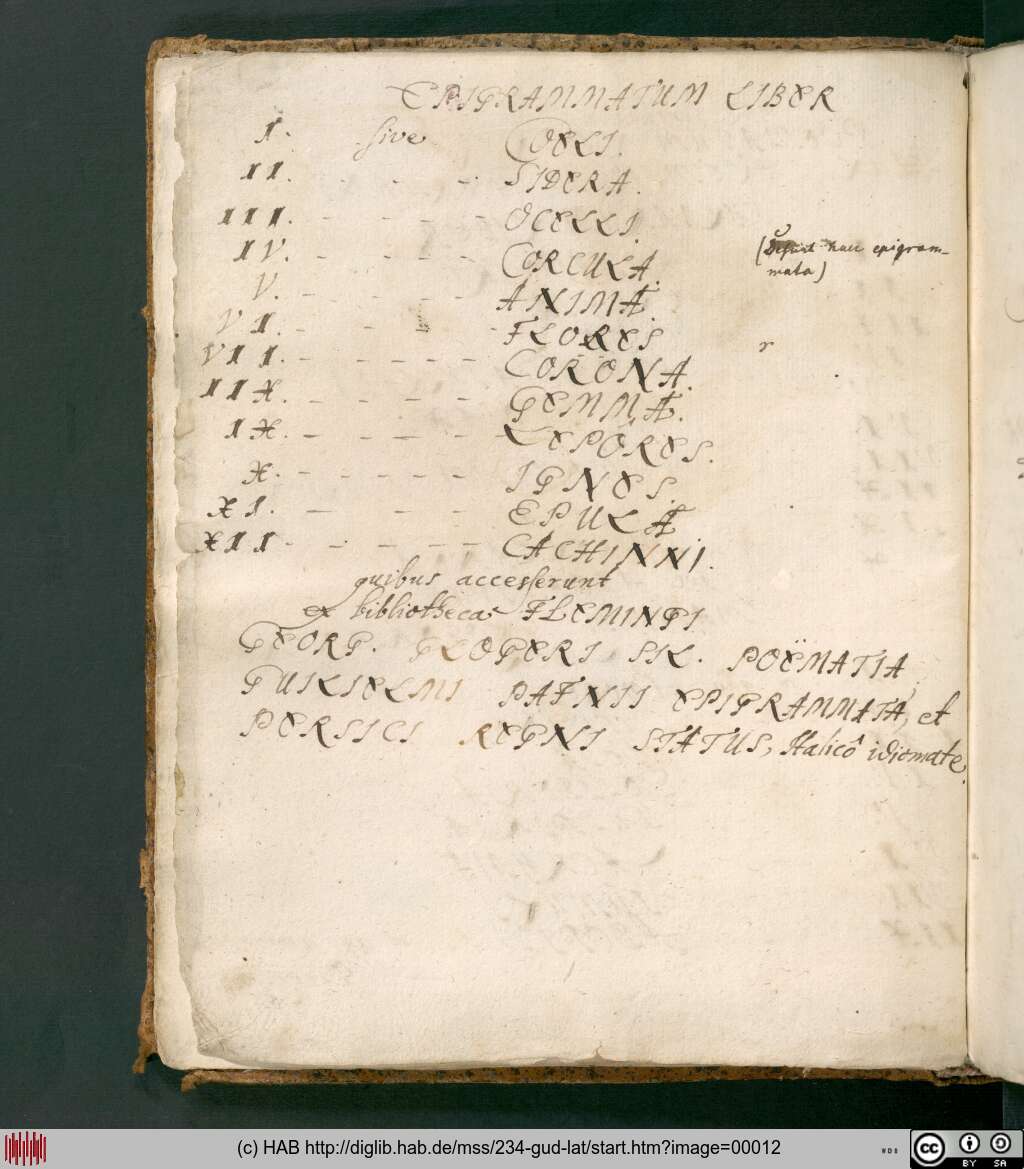 EPIGRAMMATUM LIBER
I. sive COELI.
II. - - - - SIDERA.
III. - - - - - OCELLI.
IV. - - - - - CORCULA.
(Desunt haec epigram-
mata)
V. - - - - - ANIMÆ.
VI. - - - - - FLORES
r
VII. - - - - - CORONA.
IIX. - - - - - GEMMÆ.
IX. - - - - - LEPORES.
X. - - - - - IGNES.
XI. - - - - EPULÆ
XII. - - - - - CACHINNI.
quibus accesserunt
ex bibliotheca FLEMINGI
GEORG. GLOGERI SIL. POËMATIA
GUILIELMI DAFNII EPIGRAMMATA, et
PERSICI REGNI STATUS, Italicô idiomate.
(c) HAB http://diglib.hab.de/mss/234-gud-lat/start.htm?image=00012
cc BY SA